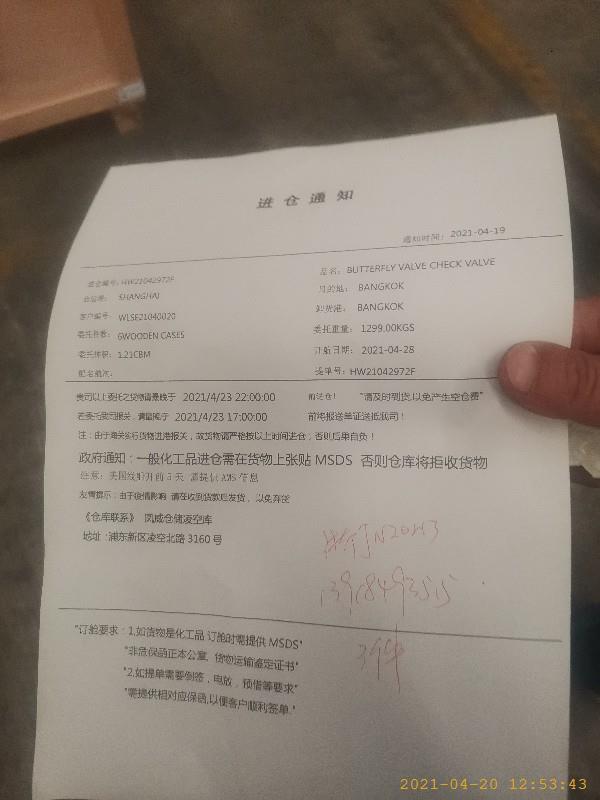 进仓通知
通知时间：2021-04-19
进仓编号：HW21042972F
品名：BUTTERFLY VALVE CHECK VALVE
SHANGHAI
目的地：BANGKOK
客户编号：WLSE21040020
卸货港：BANGKOK
委托件数：6WOODEN CASES
委托重量：1299.00KGS
委托体积：1.21CBM
订航日期：2021-04-28
船名航次：
提单号：HW21042972F
贵司以上委托之货物请最晚于 2021/4/23 22:00:00 前进仓！ "请及时到货,以免产生空仓费"
若委托我司报关，请最晚于 2021/4/23 17:00:00 前将报送单证送抵我司！
注：由于海关实行货物进港报关，故货物请严格按以上时间进仓，否则后果自负！
政府通知：一般化工品进仓需在货物上张贴 MSDS 否则仓库将拒收货物
注意：美国线船开前 天 需提供 AMS 信息
友情提示：由于疫情影响 请在收到货款后发货，以免弃货
《仓库联系》 凤威仓储凌空库
地址：浦东新区凌空北路 3160 号
"订舱要求：1.如货物是化工品 订舱时需提供 MSDS"
"非危保函正本公章，货物运输鉴定证书"
"2.如提单需要倒签，电放，预借等要求"
"需提供相对应保函,以便客户顺利签单."
2021-04-20 12:53:43